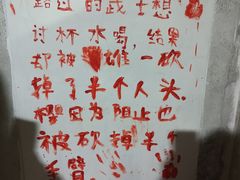 路过的武士想
讨杯水喝，结果
却被雄一砍
掉了半个人头.
樱因为阻止也
被砍掉半个
手臂.